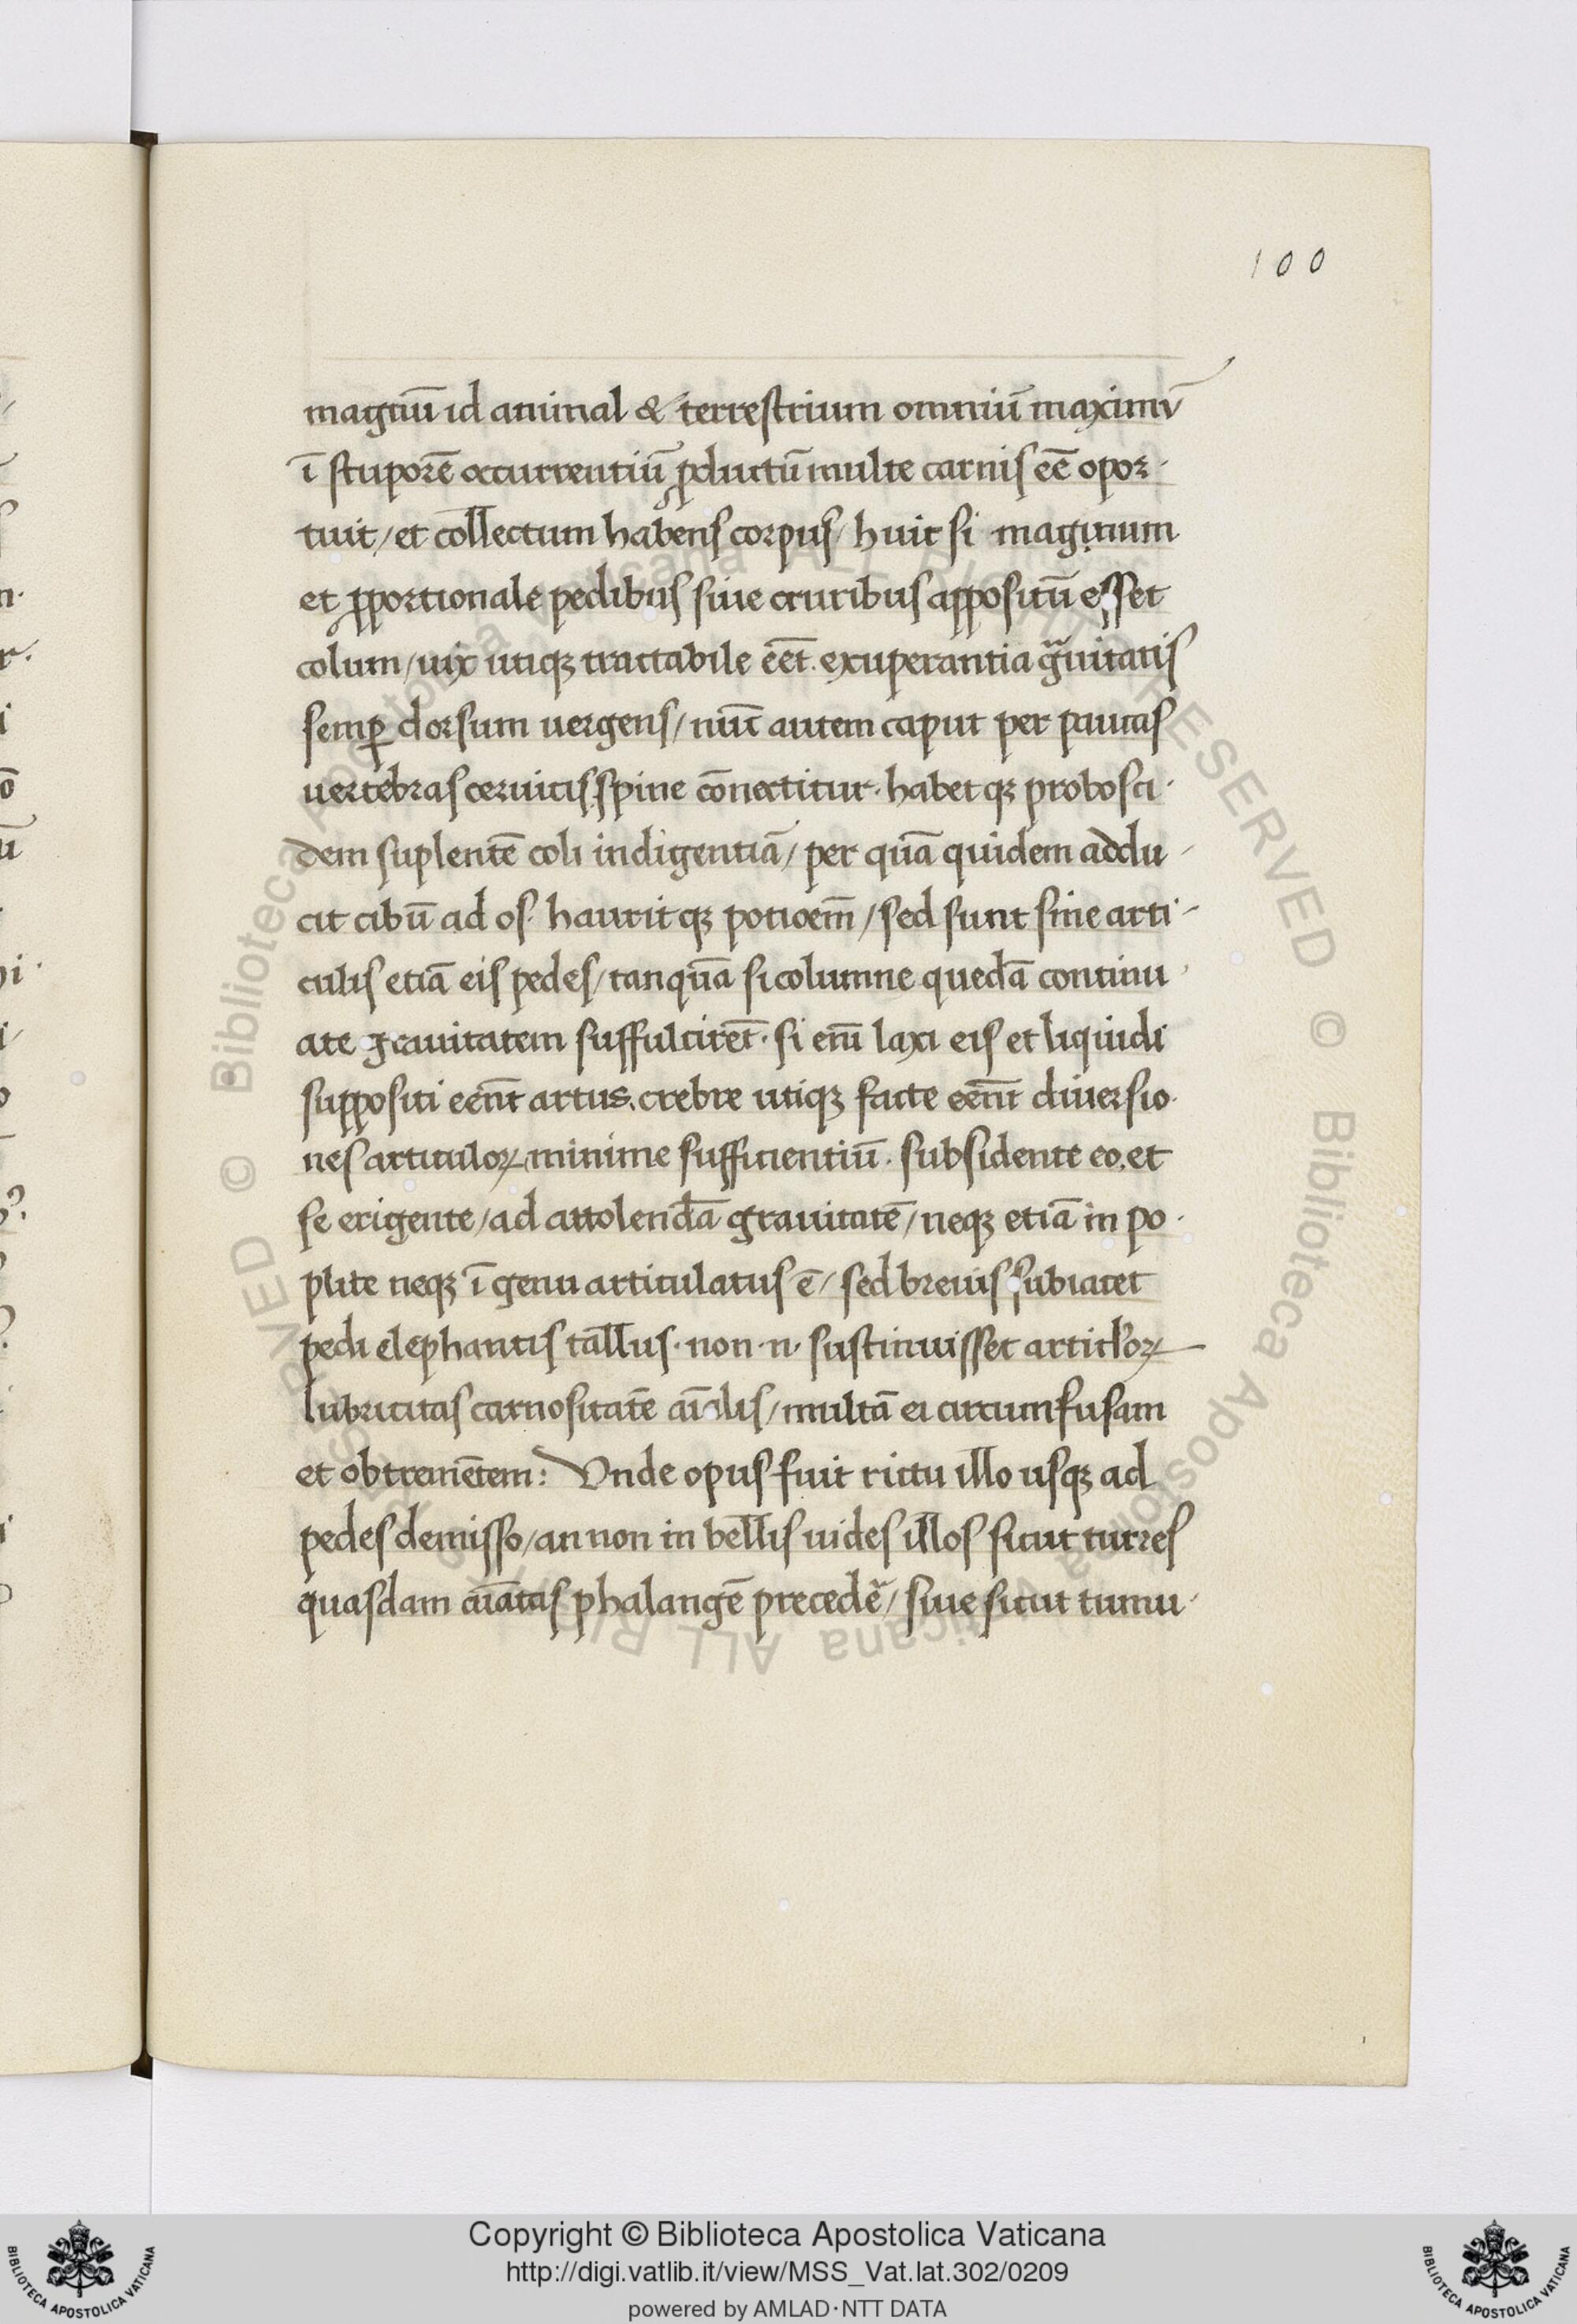 100
magnū id animal & terrestrium omniū maximū
ī stuporē occurrentiū ꝓductū multe carnis eē opor-
tuit / et collectum habens corpus / huic si magnum
et ꝓportionale pedibus siue cruribus appositū esset
colum / uix utiqꝫ tractabile eēt. exuperantia gͣuitatis
semꝑ dorsum uergens / nūc autem caput per paucas
uertebras ceruicis spine cōnectitur. habetqꝫ probosci-
dem suplentē coli indigentiā / per quā quidem addu-
cit cibū ad os. hauritqꝫ potioem̄ / sed sunt sine arti-
culis etiā eis pedes / tanquā si columne quedā continu
ate grauitatem suffulcirēt. si enī laxi eis et liquidi
suppositi eēnt artus. crebre utiqꝫ facte eēnt diuersio-
nes articuloꝝ minime sufficientiū. subsidente eo. et
se erigente / ad attolendā grauitatē / neqꝫ etiā in po-
plite neqꝫ ī genu articulatus ē / sed breuis subiacet
pedi elephantis tallus. non .n. sustinuisset articl̓oꝝ
lubricitas carnositatē aīalis / multā ei circumfusam
et obtremētem: Vnde opus fuit rictu illo usqꝫ ad
pedes demisso / an non in bellis uides illos sicut turres
quasdam aīatas phalangē precedē̓ / siue sicut tumu-
Copyright © Biblioteca Apostolica Vaticana
http://digi.vatlib.it/view/MSS_Vat.lat.302/0209
powered by AMLAD·NTT DATA